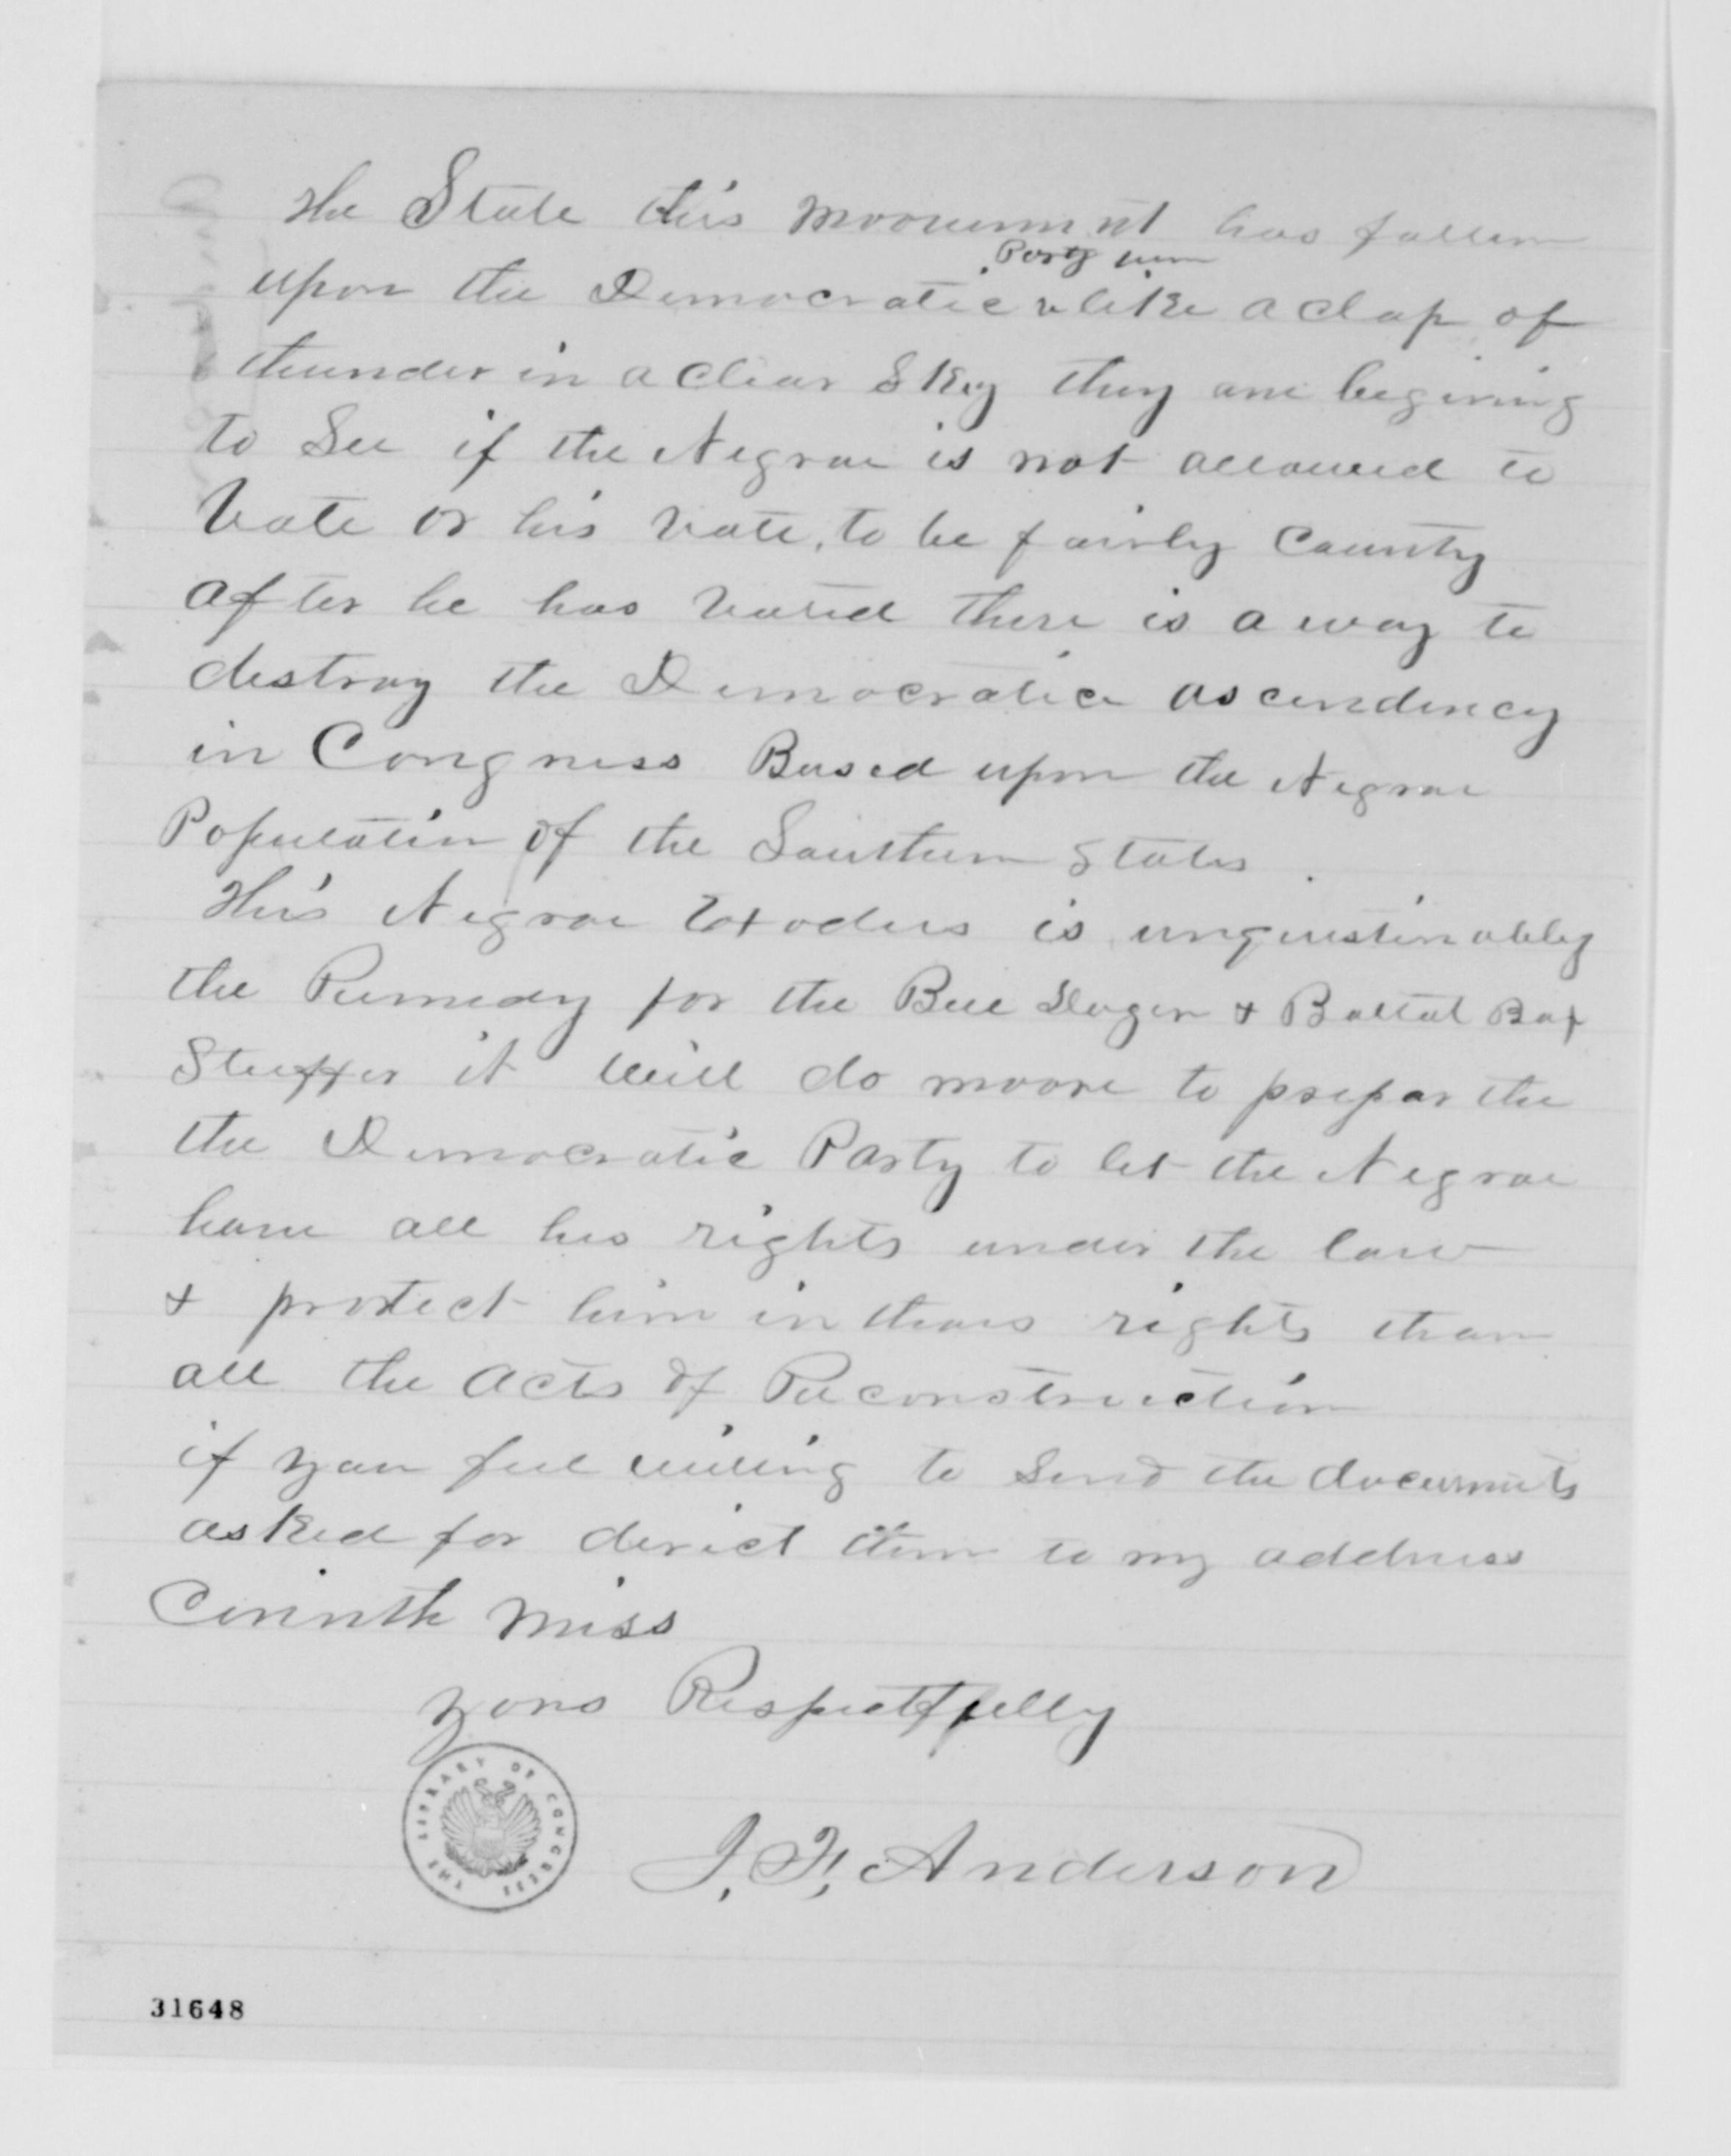 the State this moovemnt has fallen
Party here
upon the Democratic like a clap of
thunder in a clear Sky they are begining
to See if the Negroe is not allowed to
Vote or his vote, to be fairly County
after he has voted there is a way to
destroy the Democratice ascendency
in Congress Based upon the Negroe
Population of the Southern States.
This Negroe Exodus is unquestinably
the Remedy for the Bull Doger + Ballot Box
Stuffer it will do moore to prepar the
the Democratic Party to let the Negroe
have all his rights under the law
+ protect him in thoes rights than
all the acts of Reconstruction
if you feel willing to Send the documents
asked for derict them to my address
Corinth Miss
yors Respectfully
THE LIBRARY OF CONGRESS
J. F. Anderson
31648